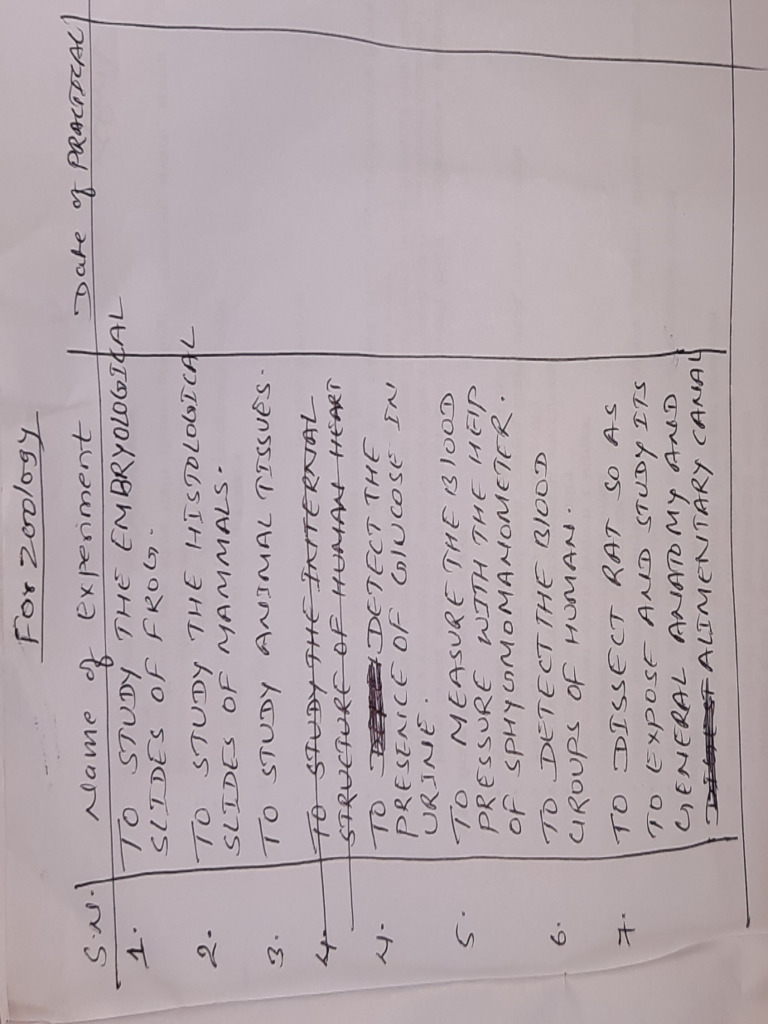 For Zoology
S.N. Name of experiment Date of PRACTICAL
1. TO STUDY THE EMBRYOLOGICAL
SLIDES OF FROG.
2. TO STUDY THE HISTOLOGICAL
SLIDES OF MAMMALS.
3. TO STUDY ANIMAL TISSUES.
4. TO STUDY THE INTERNAL
STRUCTURE OF HUMAN HEART
4. TO DETECT THE
PRESENCE OF GLUCOSE IN
URINE.
5. TO MEASURE THE BLOOD
PRESSURE WITH THE HELP
OF SPHYGMOMANOMETER.
6. TO DETECT THE BLOOD
GROUPS OF HUMAN.
7. TO DISSECT RAT SO AS
TO EXPOSE AND STUDY ITS
GENERAL ANATOMY AND
ALIMENTARY CANAL